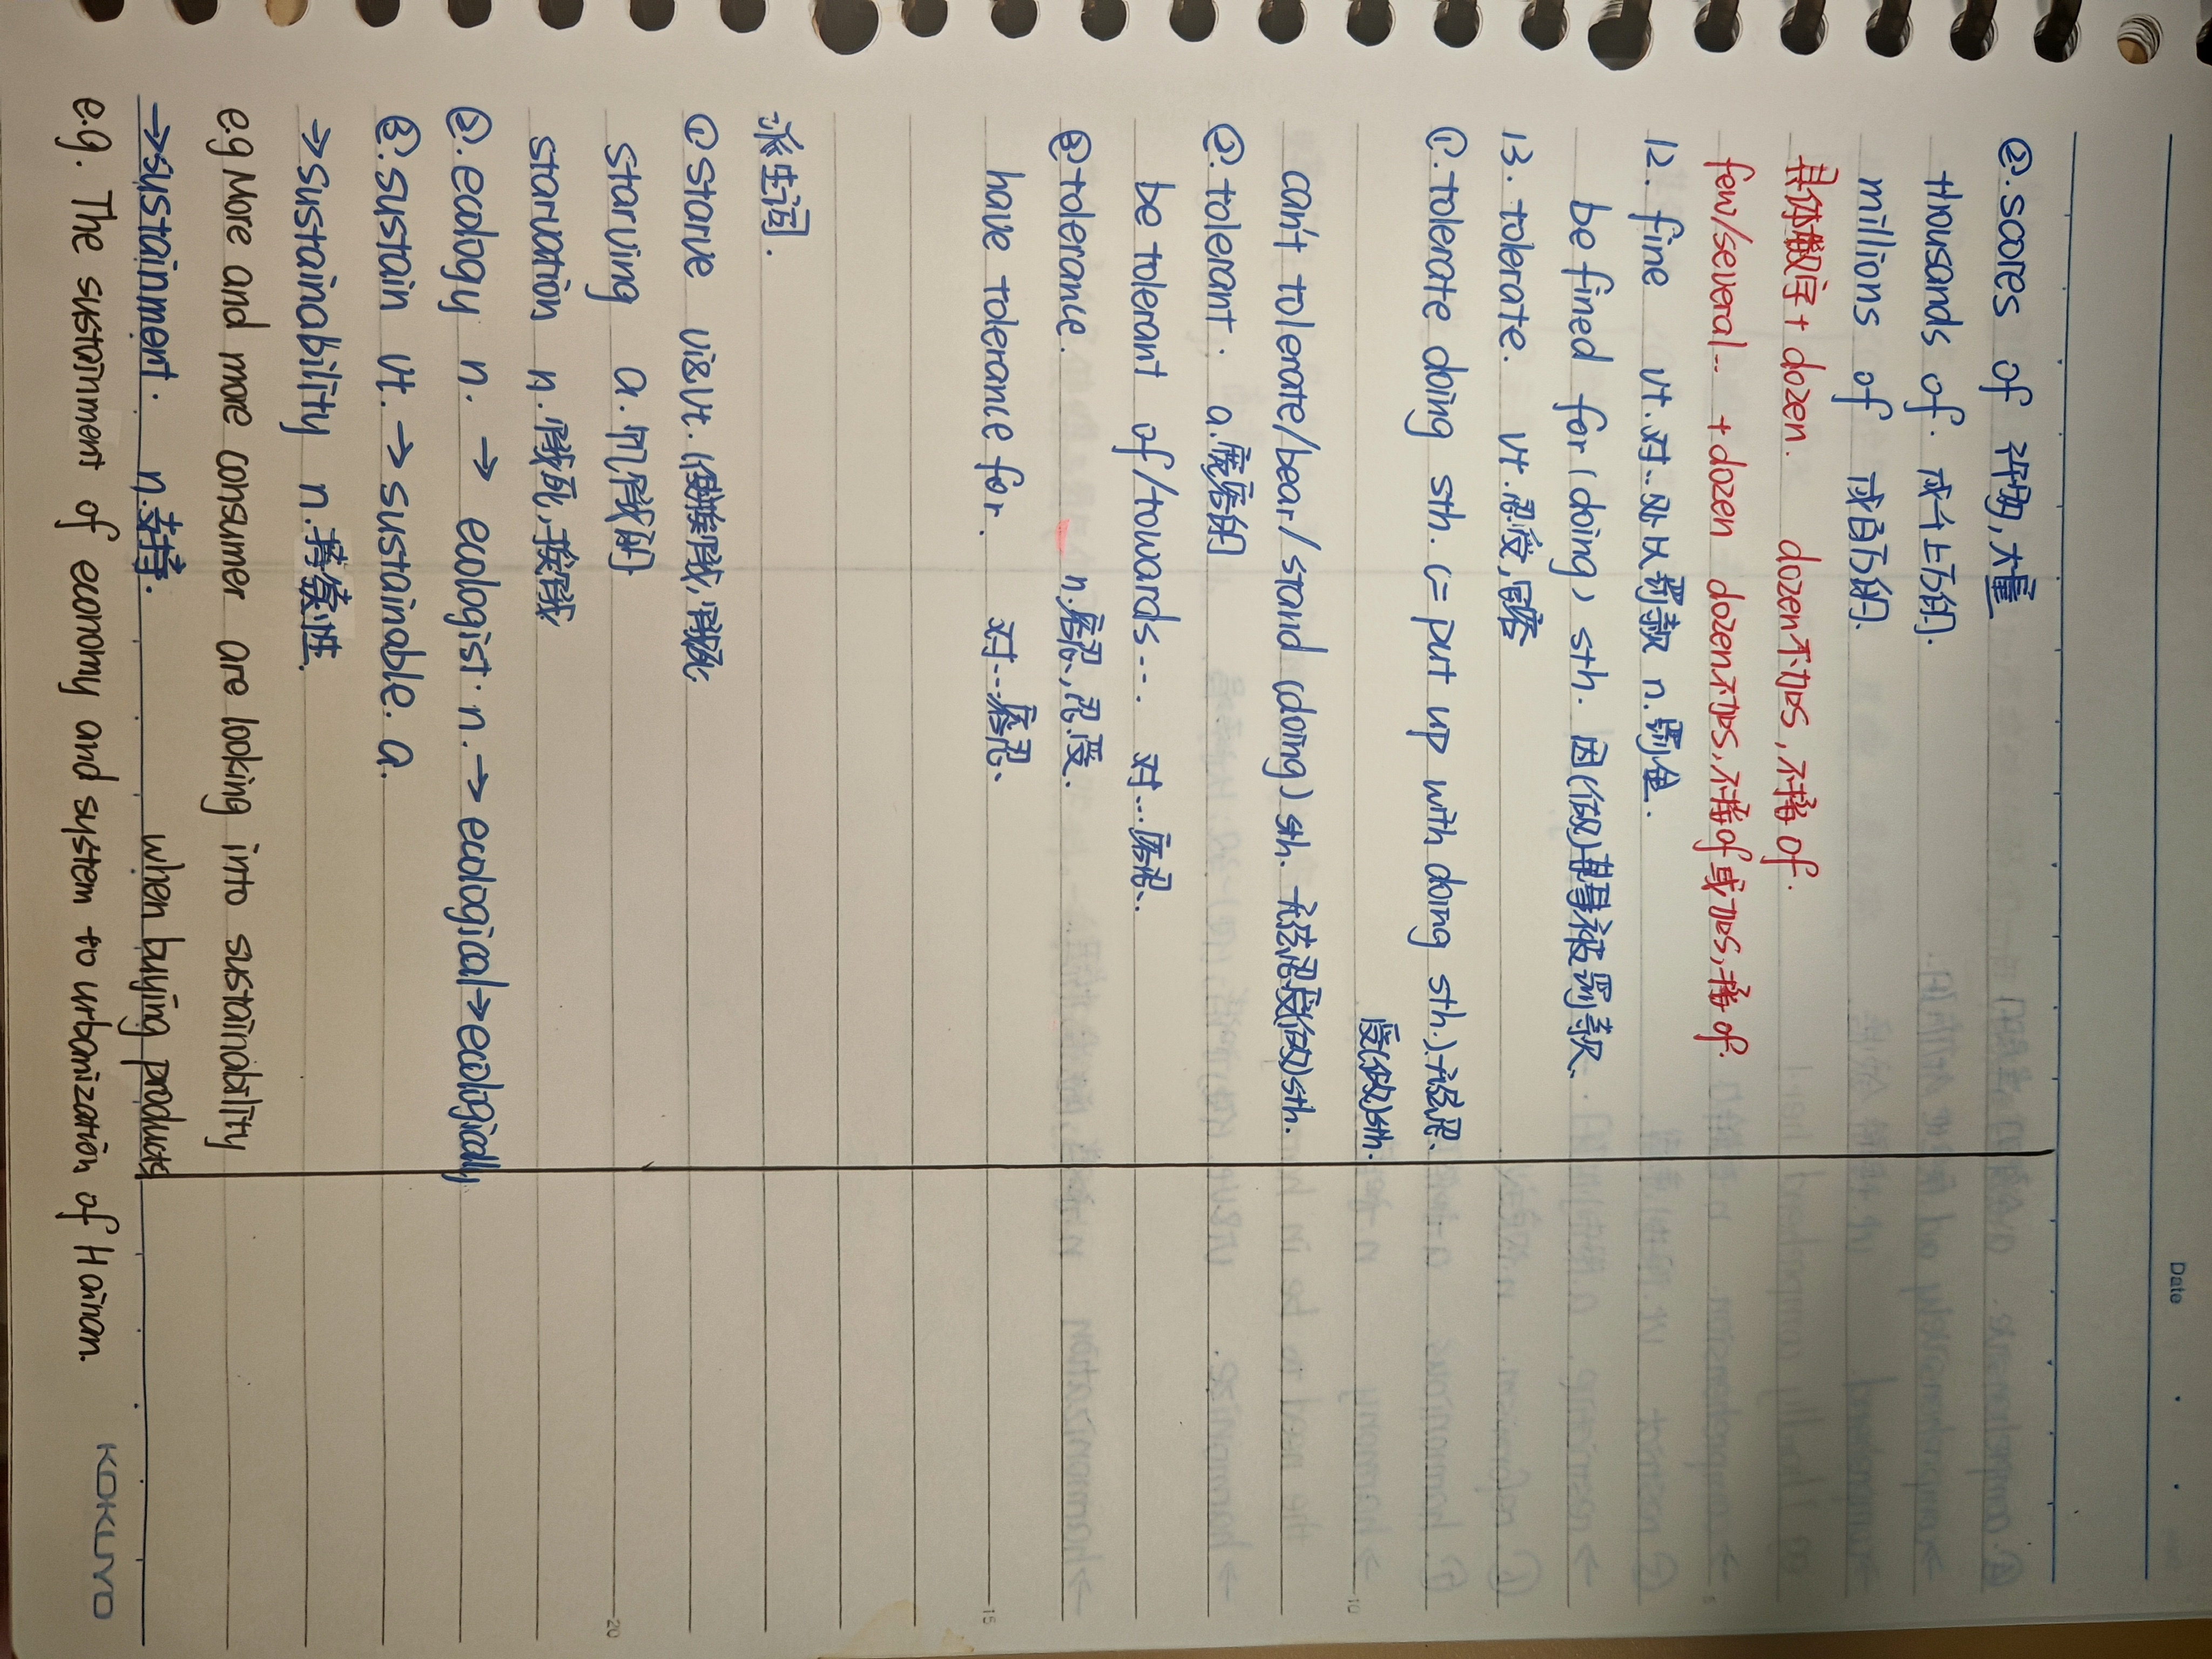 Date
②.scores of 许多,大量
thousands of. 成千上万的.
millions of 成百万的.
具体数字+dozen. dozen不加s,不接of.
few/several… +dozen dozen不加s,不接of或加s,接of.
12. fine vt.对…处以罚款 n.罚金.
be fined for(doing) sth. 因(做)某事被罚款.
13. tolerate. vt.忍受,容
①.tolerate doing sth. (= put up with doing sth.)无法忍
受(做)sth.
can't tolerate/bear/stand (doing) sth. 无法忍受(做)sth.
②.tolerant. a.宽容的
be tolerant of/towards… 对…容忍.
③tolerance. n.容忍,忍受.
have tolerance for. 对…容忍.
派生词.
①starve vi&vt.(使)挨饿,饿死
starving a.饥饿的
starvation n.饿死,挨饿
②.ecology n. → ecologist. n.→ ecological→ecologically
③.sustain vt.→sustainable. a.
→sustainability n.持续性.
e.g More and more consumer are looking into sustainability
when buying products
→sustainment. n.支持.
e.g. The sustainment of economy and system to urbanization of Hainan.
KOKUYO